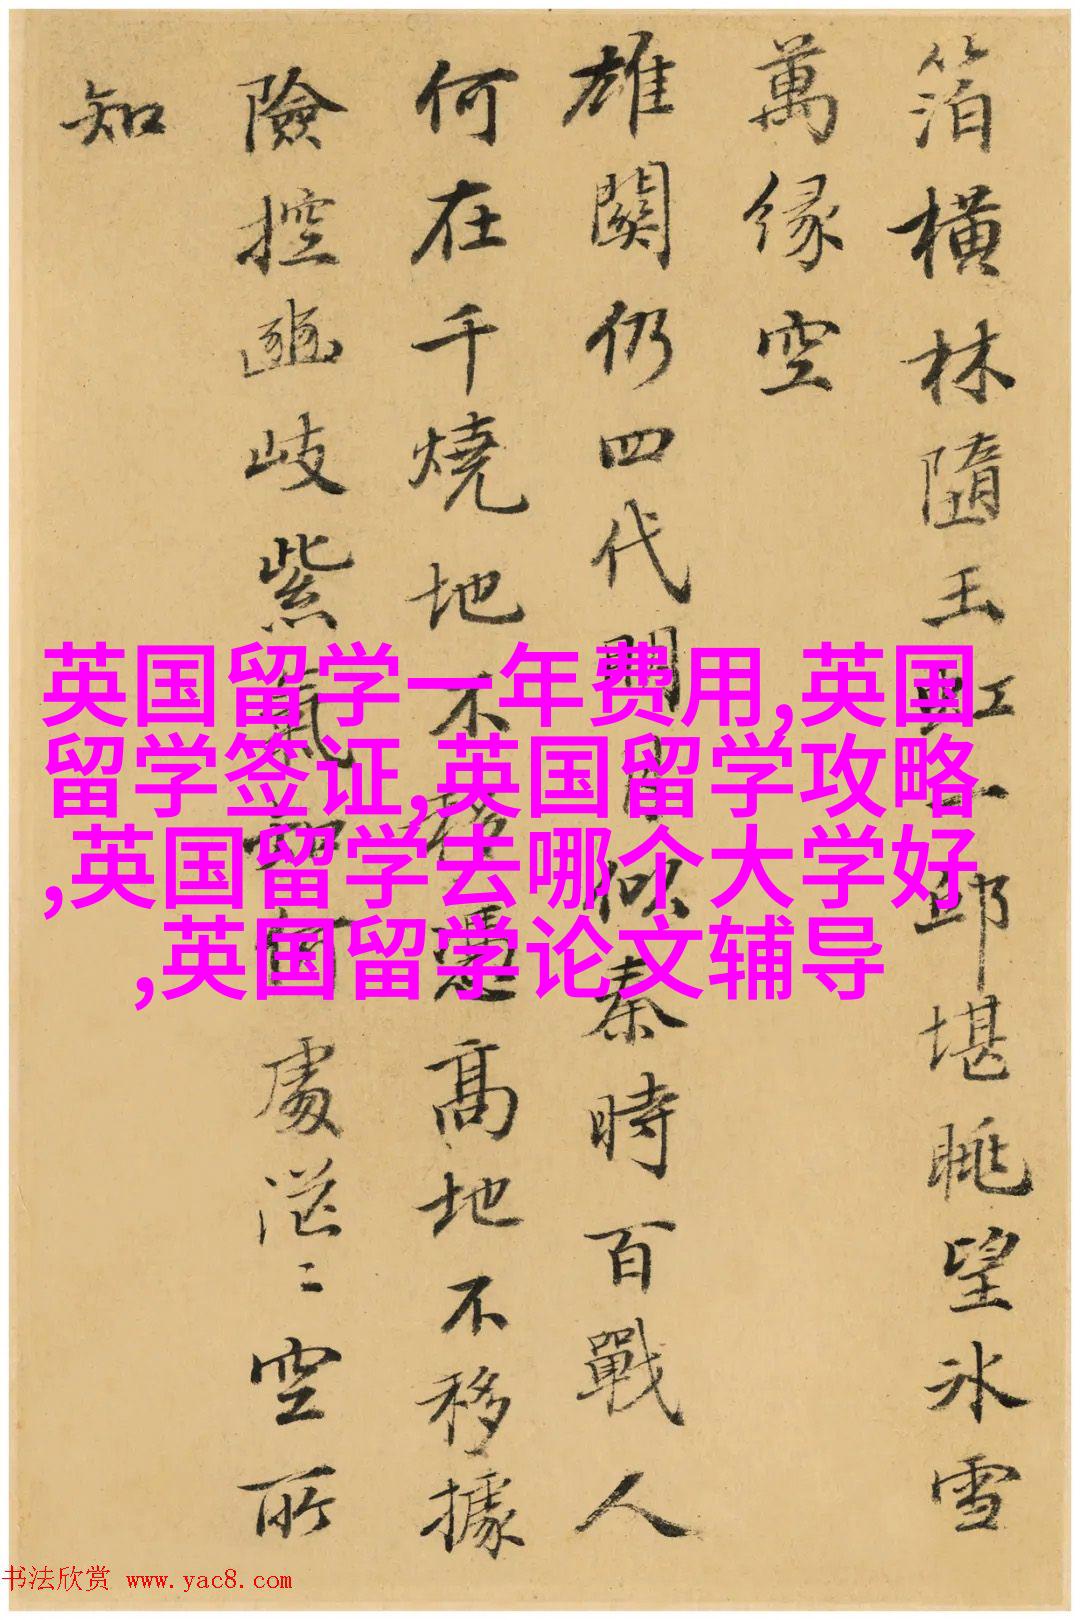 箔橫林隨玉虹一邱堪眺望氷雪
萬緣空
雄關仍四代關月似秦時百戰人
何在千燒地不移憑高地不移據
險控豳岐紫氣知何處茫〻空所
知
英国留学一年费用,英国
留学签证,英国留学攻略
,英国留学去哪个大学好
,英国留学论文辅导
书法欣赏 www.yac8.com